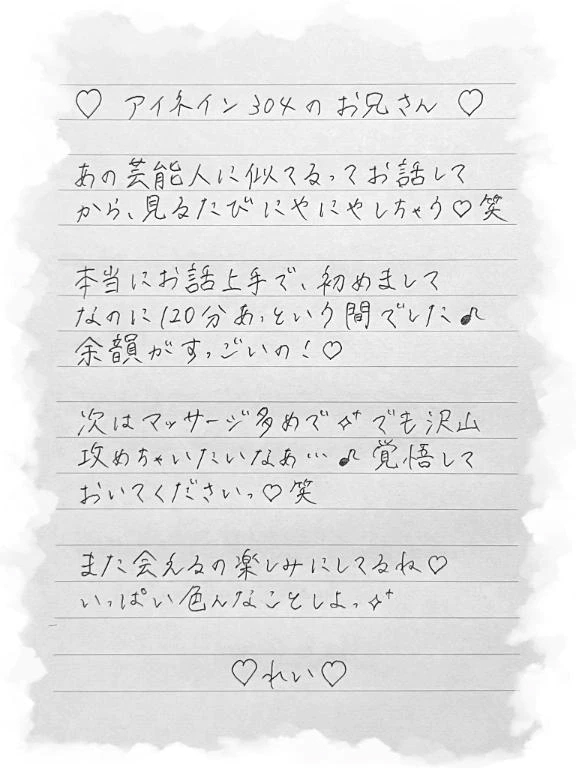 ♡ アイネイン304のお兄さん ♡
あの芸能人に似てるってお話して
から、見るたびにやにやしちゃう♡笑
本当にお話上手で、初めまして
なのに120分あっという間でした♪
余韻がすっごいの！♡
次はマッサージ多めで✧⁺でも沢山
攻めちゃいたいなあ…♪覚悟して
おいてくださいっ♡笑
また会えるの楽しみにしてるね♡
いっぱい色んなことしよっ✧⁺
♡れい♡